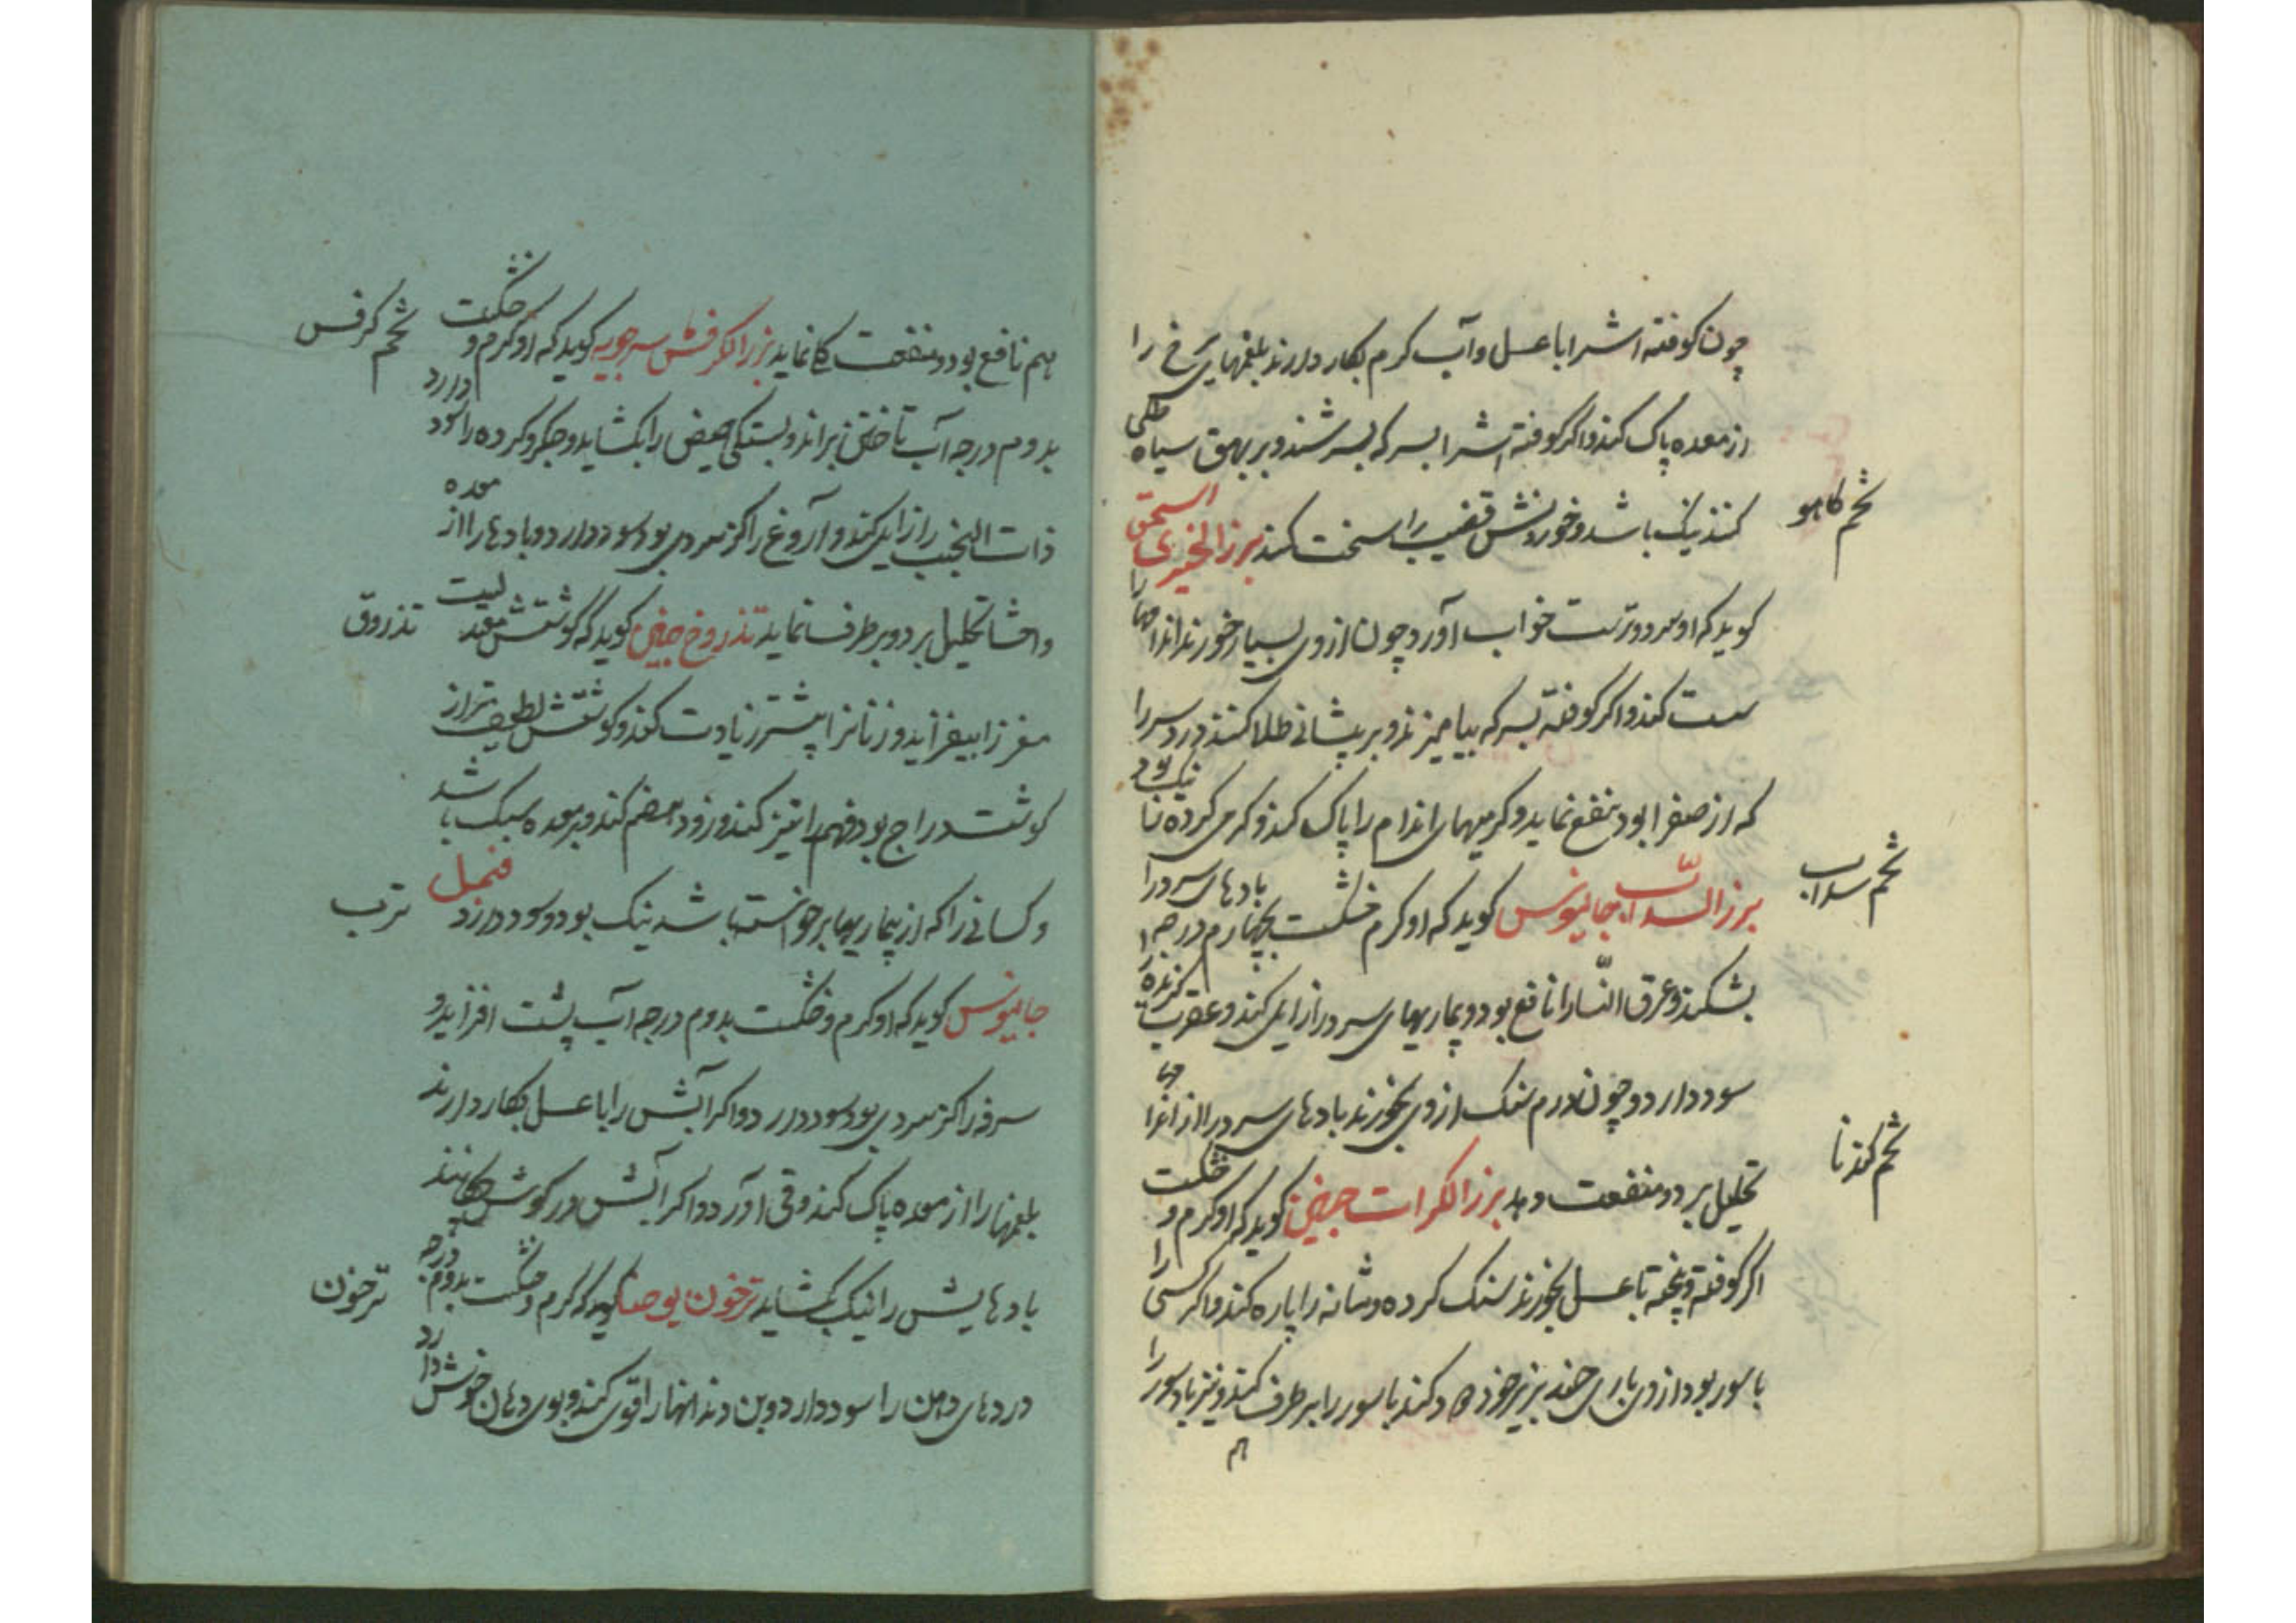 چون کوفته اش را با عسل و آب کرم بکار دارند بلغمهای را
از معده پاک کند و اکر کوفته اش را بسرکه بسرشند و بر بهق سیاه طلی
تخم کاهو
کنند نیک باشد و خوردنش قضیب را سخت کند بزر الخس اسحق
کوید که او سرد و ترست خواب آورد چون از وی بسیار خورند اندامها را
سست کند و اکر کوفته بسرکه بیامیزند و بر پیشانی طلا کنند درد سر را
که از صفرا بود نفع نماید و کرمیهای اندام را پاک کند و کرمی کرده را نیک بود
تخم سداب
بزر السداب جالینوس کوید که او کرم خشکست بچهارم درجه بادهای سرد را
بشکند و عرق النسا را نافع بود و بیماریهای سرد را زایل کند و عقرب کزنده را
سود دارد و چون درم سنک از وی بخورند بادهای سرد را از اندامها
تخم کندنا
تحلیل برد و منفعت دهد بزر الکراث کوید که او کرم و خشکست
اکر کوفته و پخته با عسل بخورند سنک کرده و مثانه را پاره کند و اکر کسی را
باسور بود از وی باری چند بزیر خود دود کند باسور را برطرف کند و نیز باسور را
هم
هم نافع بود و منفعت نماید بزر الکرفس کوید که او کرم و خشکست
تخم کرفس
بدوم درجه آب تاختن براند و بستکی حیض را بکشاید و جکر و کرده را سود دارد
ذات الجنب را زایل کند و آروغ را کز سردی بود سود دارد و بادها را از معده
و احشا تحلیل برد و برطرف نماید تذروج کوید که کوشتش معتدلیست
تذروق
مغز را بیفزاید و زنانرا پیشتر زیادت کند و کوشتش لطیف تر از
کوشت دراج بود فهم را تیز کند و زود هضم کند و بر معده سبک باشد
و کسانی را که از بیماریها برخواسته باشند نیک بود و سود دارد فجل
ترب
جالینوس کوید که او کرم و خشکست بدوم درجه آب پشت افزاید و
سرفه را کز سردی بود سود دارد و اکر آبش را با عسل بکار دارند
بلغمها را از معده پاک کند و قی آورد و اکر آبش در کوش چکانند
بادهایش را نیک بکشاید ترخون یوحنا کوید که کرم و خشکست بدوم درجه
ترخون
دردهای دهن را سود دارد و بن دندانها را قوی کند و بوی دهان خوش دارد